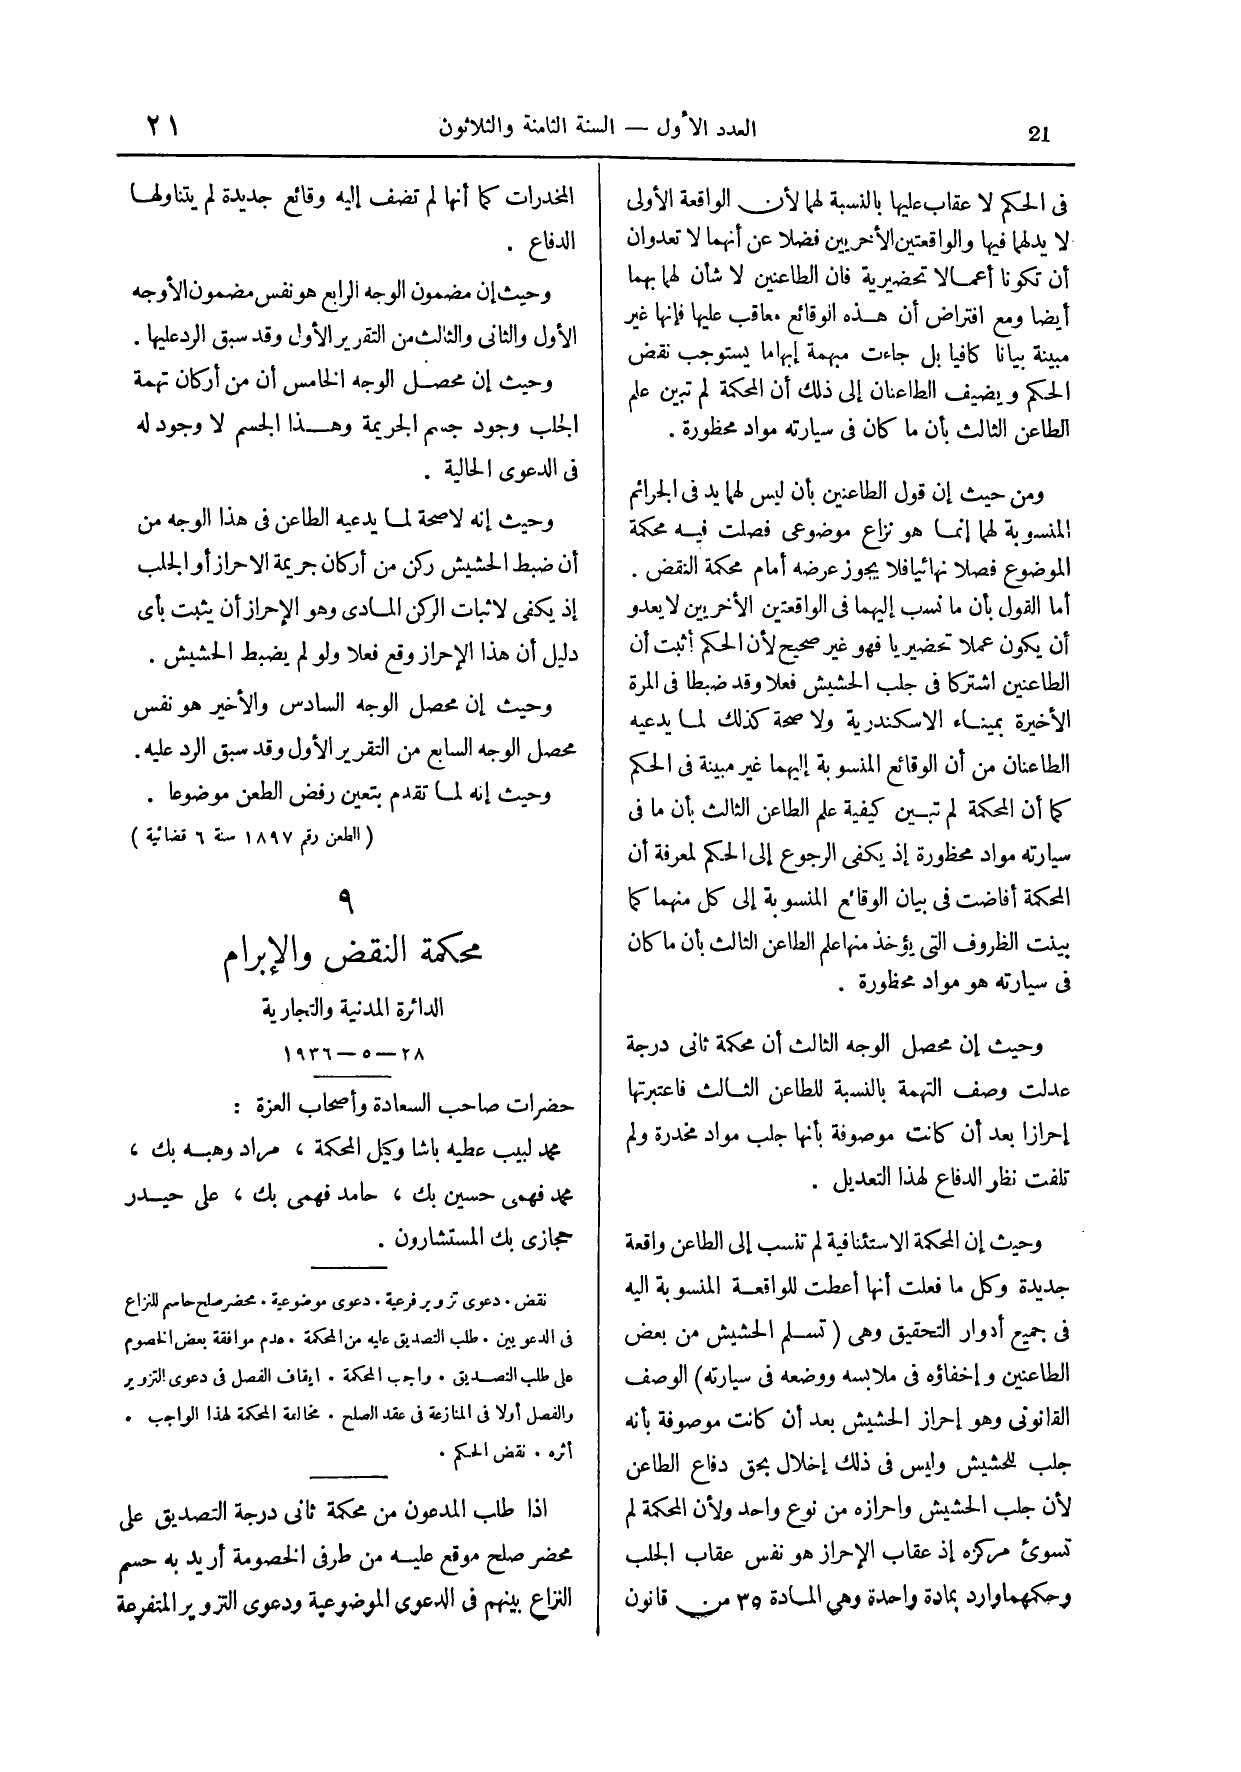 21
العدد الأول — السنة الثامنة والثلاثون
٢١
فى الحكم لا عقاب عليها بالنسبة لهما لأن الواقعة الأولى
لا يدلهما فيها والواقعتين الأخريين فضلا عن أنهما لا تعدوان
أن تكونا أعمالا تحضيرية فان الطاعنين لا شأن لهما بهما
أيضا ومع افتراض أن هذه الوقائع معاقب عليها فإنها غير
مبينة بيانا كافيا بل جاءت مبهمة إبهاما يستوجب نقض
الحكم ويضيف الطاعنان إلى ذلك أن المحكمة لم تبين علم
الطاعن الثالث بأن ما كان فى سيارته مواد محظورة .
ومن حيث إن قول الطاعنين بأن ليس لهما يد فى الجرائم
المنسوبة لهما إنما هو نزاع موضوعى فصلت فيه محكمة
الموضوع فصلا نهائيا فلا يجوز عرضه أمام محكمة النقض .
أما القول بأن ما نسب إليهما فى الواقعتين الأخريين لا يعدو
أن يكون عملا تحضيريا فهو غير صحيح لأن الحكم أثبت أن
الطاعنين اشتركا فى جلب الحشيش فعلا وقد ضبطا فى المرة
الأخيرة بميناء الاسكندرية ولا صحة كذلك لما يدعيه
الطاعنان من أن الوقائع المنسوبة إليهما غير مبينة فى الحكم
كما أن المحكمة لم تبين كيفية علم الطاعن الثالث بأن ما فى
سيارته مواد محظورة إذ يكفى الرجوع إلى الحكم لمعرفة أن
المحكمة أفاضت فى بيان الوقائع المنسوبة إلى كل منهما كما
بينت الظروف التى يؤخذ منها علم الطاعن الثالث بأن ما كان
فى سيارته هو مواد محظورة .
وحيث إن محصل الوجه الثالث أن محكمة ثانى درجة
عدلت وصف التهمة بالنسبة للطاعن الثالث فاعتبرتها
إحرازا بعد أن كانت موصوفة بأنها جلب مواد مخدرة ولم
تلفت نظر الدفاع لهذا التعديل .
وحيث إن المحكمة الاستئنافية لم تنسب إلى الطاعن واقعة
جديدة وكل ما فعلت أنها أعطت للواقعة المنسوبة اليه
فى جميع أدوار التحقيق وهى ( تسلم الحشيش من بعض
الطاعنين وإخفاؤه فى ملابسه ووضعه فى سيارته) الوصف
القانونى وهو إحراز الحشيش بعد أن كانت موصوفة بأنه
جلب للحشيش وليس فى ذلك إخلال بحق دفاع الطاعن
لأن جلب الحشيش واحرازه من نوع واحد ولأن المحكمة لم
تسوئ مركزه إذ عقاب الإحراز هو نفس عقاب الجلب
وحكمهما وارد بمادة واحدة وهى المادة ٣٥ من قانون
المخدرات كما أنها لم تضف إليه وقائع جديدة لم يتناولها
الدفاع .
وحيث إن مضمون الوجه الرابع هو نفس مضمون الأوجه
الأول والثانى والثالث من التقرير الأول وقد سبق الرد عليها .
وحيث إن محصل الوجه الخامس أن من أركان تهمة
الجلب وجود جسم الجريمة وهذا الجسم لا وجود له
فى الدعوى الحالية .
وحيث إنه لا صحة لما يدعيه الطاعن فى هذا الوجه من
أن ضبط الحشيش ركن من أركان جريمة الاحراز أو الجلب
إذ يكفى لاثبات الركن المادى وهو الإحراز أن يثبت بأى
دليل أن هذا الإحراز وقع فعلا ولو لم يضبط الحشيش .
وحيث إن محصل الوجه السادس والأخير هو نفس
محصل الوجه السابع من التقرير الأول وقد سبق الرد عليه .
وحيث إنه لما تقدم يتعين رفض الطعن موضوعا .
( الطعن رقم ١٨٩٧ سنة ٦ قضائية )
٩
محكمة النقض والإبرام
الدائرة المدنية والتجارية
٢٨ — ٥ — ١٩٣٦
حضرات صاحب السعادة وأصحاب العزة :
محمد لبيب عطيه باشا وكيل المحكمة ، مراد وهبه بك ،
محمد فهمى حسين بك ، حامد فهمى بك ، على حيدر
حجازى بك المستشارون .
نقض . دعوى تزوير فرعية . دعوى موضوعية . محضر صلح حاسم للنزاع
فى الدعويين . طلب التصديق عليه من المحكمة . عدم موافقة بعض الخصوم
على طلب التصديق . واجب المحكمة . ايقاف الفصل فى دعوى التزوير
والفصل أولا فى المنازعة فى عقد الصلح . مخالفة المحكمة لهذا الواجب .
أثره . نقض الحكم .
اذا طلب المدعون من محكمة ثانى درجة التصديق على
محضر صلح موقع عليه من طرفى الخصومة أريد به حسم
النزاع بينهم فى الدعوى الموضوعية ودعوى التزوير المتفرعة